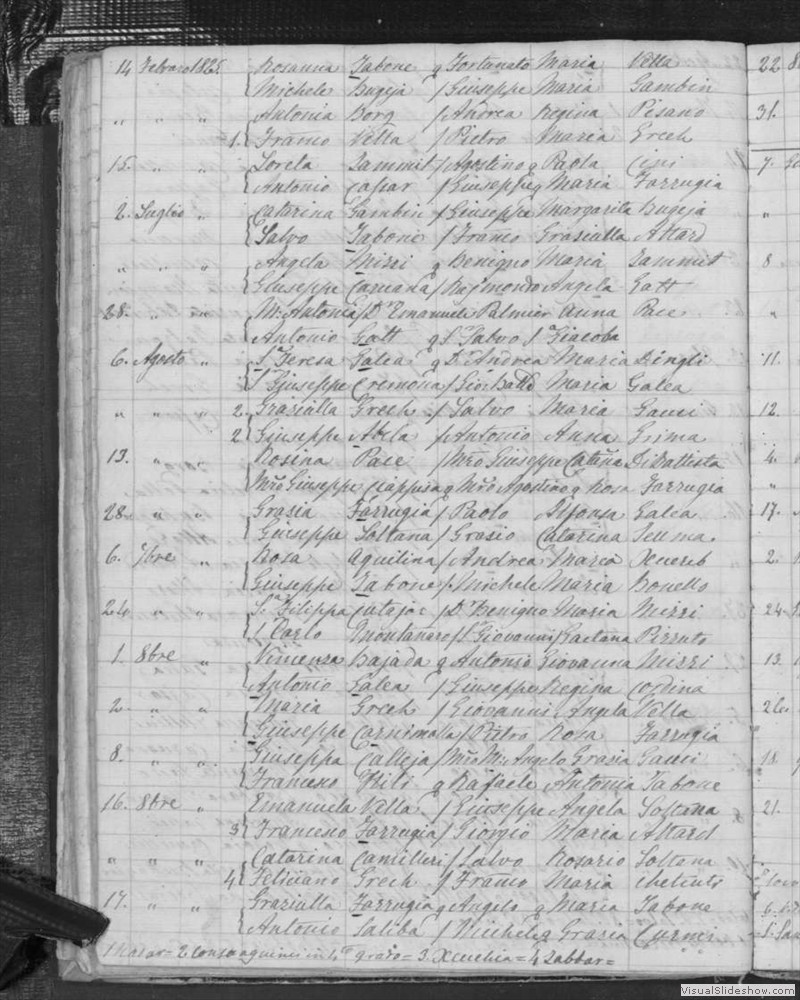 14 Febraro 1825 Rosanna Tabone q Fortunato Maria Vella 22
Michele Bugeja / Giuseppe Maria Gambin
" " " Antonia Borg / Andrea Regina Pisano 31.
1. Franco Vella / Pietro Maria Grech
15. " " Loreta Sammit / Agostino q Paola 7.
Antonio Caspar / Giuseppe q Maria Farrugia
2. Luglio " Catarina Gambin / Giuseppe Margarita Bugeja "
Salvo Tabone / Franco Grasialla Attard
" " " Angela Missi q Benigno Maria Sammut 8
Giuseppe Caruana / Rajmondo Angela Gatt
28. " " M. Antonia / Dr Emanuele Palmier Anna Pace "
Antonio Gatt q Sr Salvo Sa Giacoba
6. Agosto " Sa Teresa Galea q Dr Andrea Maria Dingli 11.
Sr Giuseppe Cremona / Gio: Batta Maria Galea
" " " 2. Grasialla Grech / Salvo Maria Gauci 12.
2 Giuseppe Abela / Antonio Anna Grima
13. " " Rosina Pace / Mro Giuseppe Catarina Di Battista 4.
Mro Giuseppe Ciappara q Mro Agostino q Rosa Farrugia "
28. " " Grasia Farrugia / Paolo Alfonsa Galea 17.
Giuseppe Soltana / Grasio Catarina
6. 7bre " Rosa Aquilina / Andrea Maria Xuereb 2.
Giuseppe Tabone / Michele Maria Bonello
24 " " Sa Filippa Cutajar / Dr Benigno Maria Missi 24.
Sr Carlo Montanaro / Sr Giovanni Gaetana Pizzuto
1. 8bre " Vincensa Bajada q Antonio Giovanna Missi 13.
Antonio Galea / Giuseppe Regina Cordina
2. " " Maria Grech / Giovanni Angela Vella
Giuseppe Carnimalla / Pietro Rosa Farrugia
8. " " Giuseppa Calleja / Mro Mi: Angelo Grasia Gauci 18.
Franceso q Rafaele Antonia Tabone
16. 8bre " Emanuela Vella / Giuseppe Angela Soltana 21.
3 Franceso Farrugia / Giorgio Maria Attard
" " " Catarina Camilleri / Salvo Rosario Soltana
4 Feliciano Grech / Franco Maria Chetcuti
17. " " Grazialla Farrugia q Angelo q Maria Tabone 6.
Antonio Saliba / Michele q Grasia Curmi
1 Nasar = 2. Consaguinei in 4o grado = 3. Xeuchia = 4 Zabbar =
VisualSlideshow.com